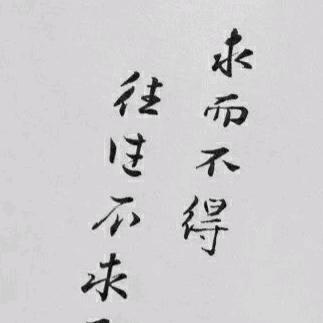 求而不得
往往不求